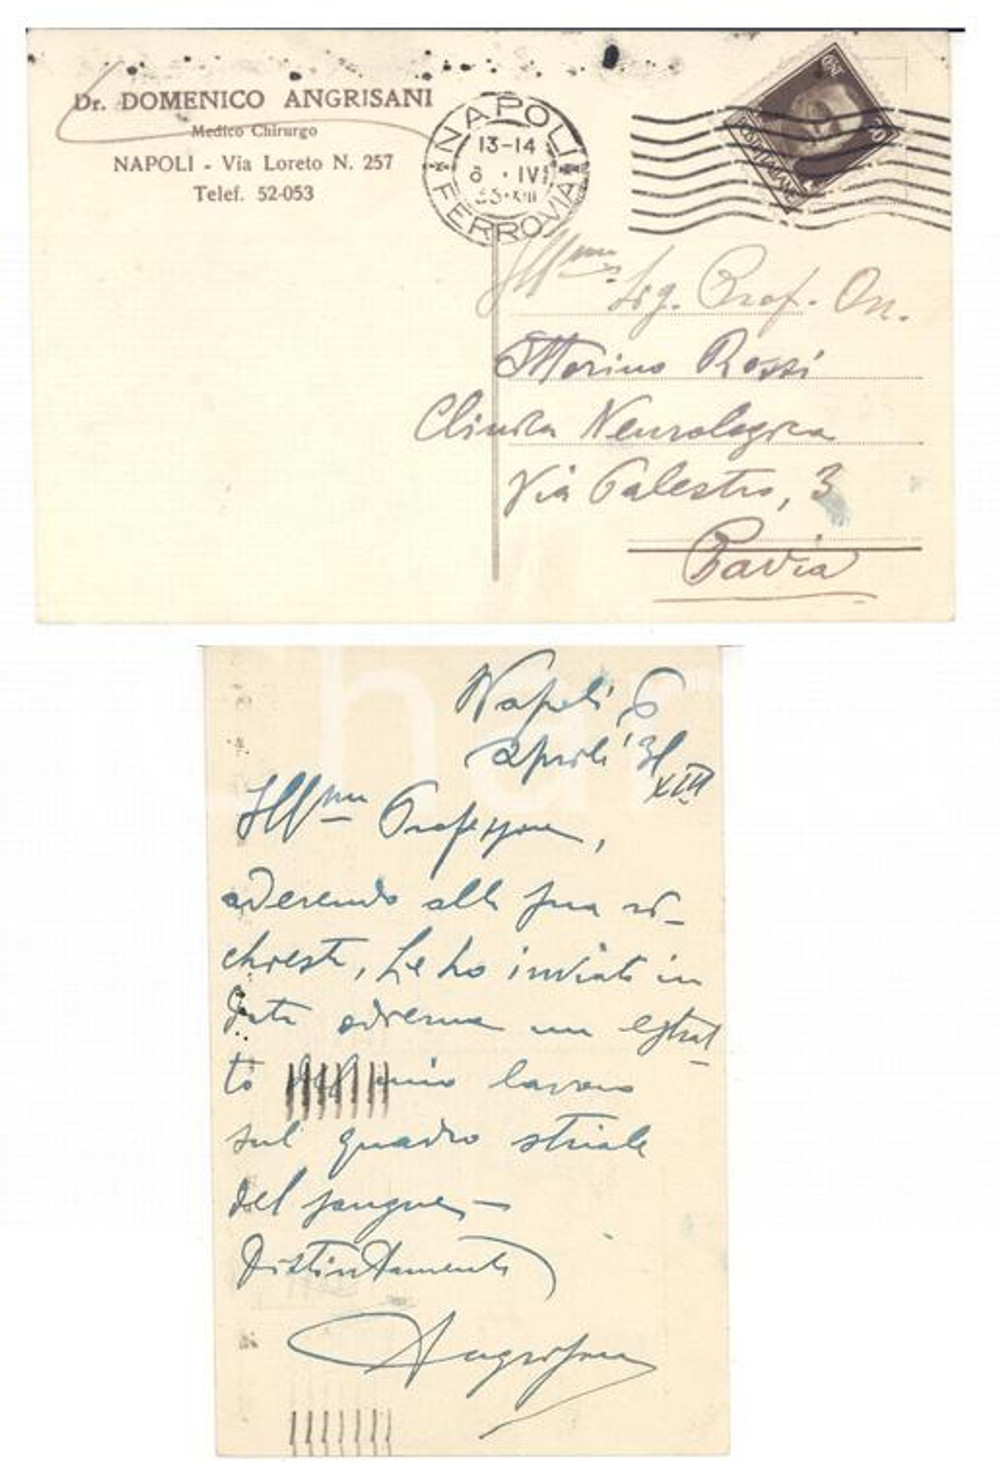 Dr. DOMENICO ANGRISANI
Medico Chirurgo
NAPOLI - Via Loreto N. 257
Telef. 52-053
NAPOLI
13-14
6 · IV
35·XIII
FERROVIA
Ill.mo Sig. Prof. On.
Ottorino Rossi
Clinica Neurologica
Via Palestro, 3
Pavia
Napoli 6
aprile '35
XIII
Ill.mo Professore,
aderendo alla sua ri-
chiesta, Le ho inviato in
data odierna un estrat-
to del mio lavoro
sul quadro striale
del sangue -
Distintamente
Angrisani